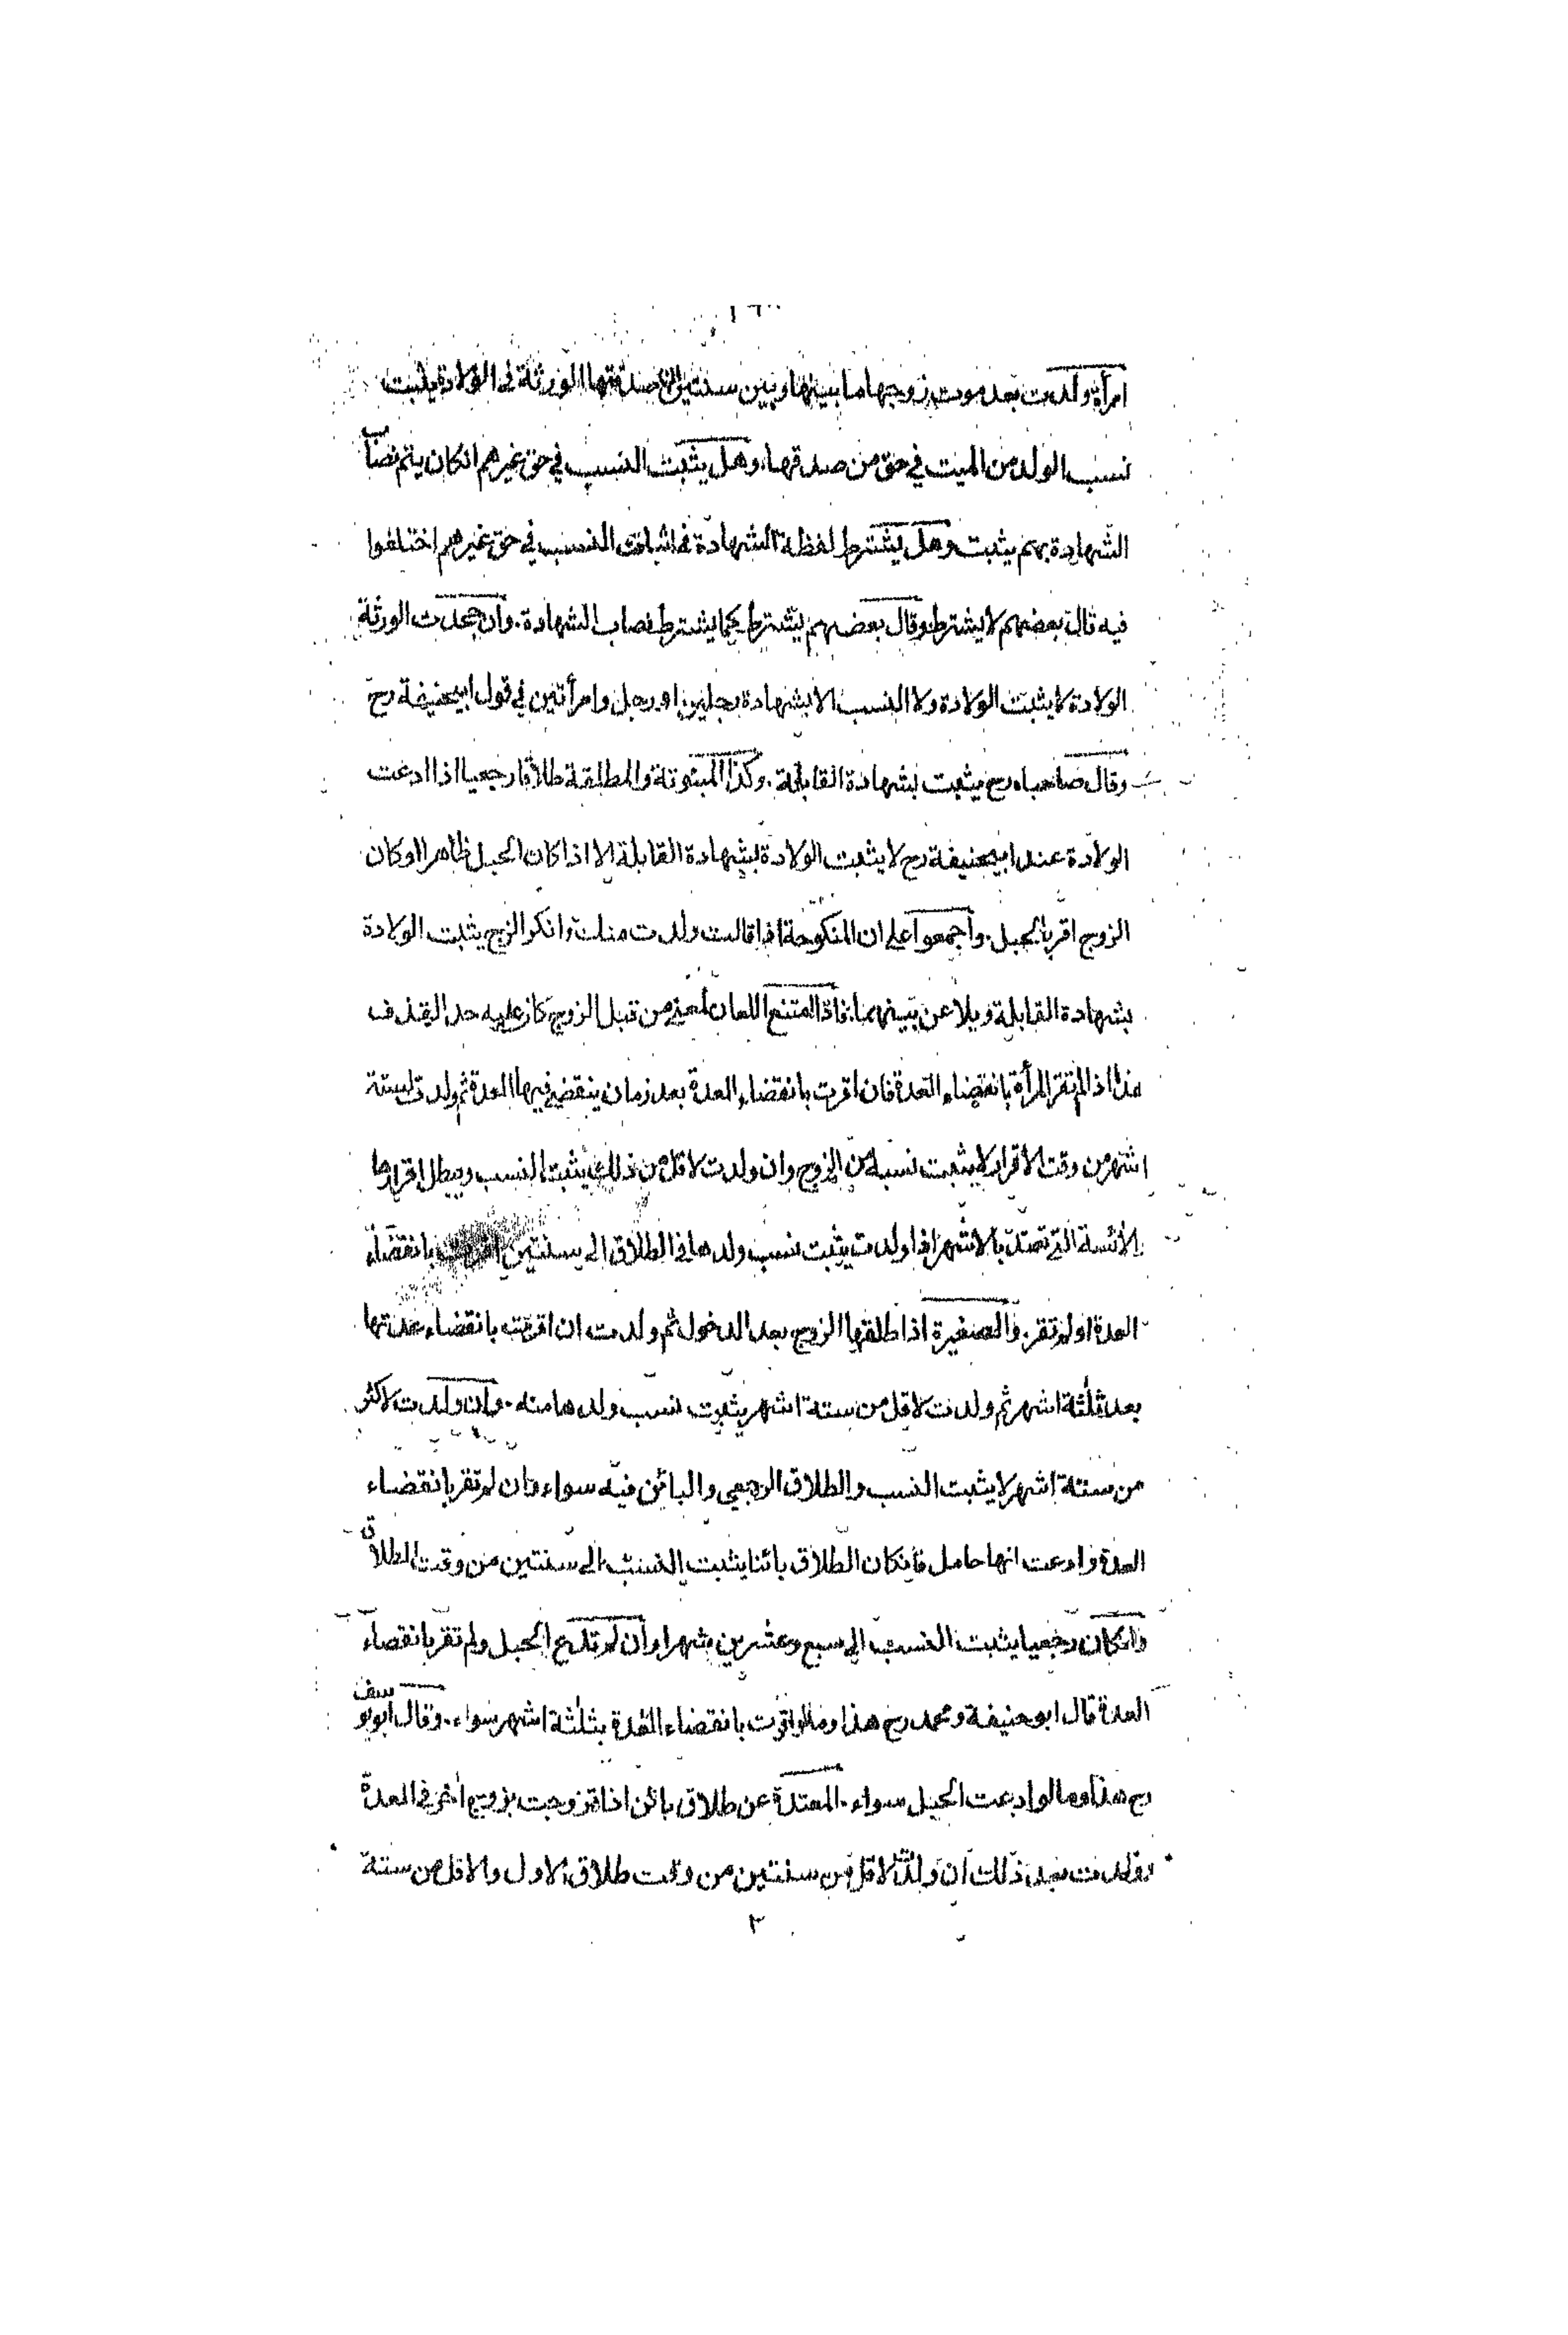 امرأة ولدت بعد موت زوجها ما بينها وبين سنتين ان صدقتها الورثة في الولادة يثبت
نسب الولد من الميت في حق من صدقها، وهل يثبت النسب في حق غيرهم انكان يتم نصاب
الشهادة بهم يثبت وهل يشترط لفظة الشهادة في اثبات النسب في حق غيرهم اختلفوا
فيه قال بعضهم لا يشترط وقال بعضهم يشترط كما يشترط نصاب الشهادة. وان جحدت الورثة
الولادة لا يثبت الولادة ولا النسب الا بشهادة رجلين او رجل وامرأتين في قول ابيحنيفة رح
وقال صاحباه رح يثبت بشهادة القابلة. وكذا المبتوتة والمطلقة طلاقا رجعيا اذا ادعت
الولادة عند ابيحنيفة رح لا يثبت الولادة بشهادة القابلة الا اذا كان الحبل ظاهرا او كان
الزوج اقر بالحبل. وأجمعوا على ان المنكوحة اذا قالت ولدت منك وانكر الزوج يثبت الولادة
بشهادة القابلة ويلاعن بينهما. فاذا امتنع اللعان لمعنى من قبل الزوج كان عليه حد القذف
هذا اذا لم تقر المرأة بانقضاء العدة فان اقرت بانقضاء العدة بعد زمان ينقضي فيها العدة ثم ولدت لستة
اشهر من وقت الاقرار لا يثبت نسبه من الزوج وان ولدت لاقل من ذلك يثبت النسب ويبطل اقرارها
الآئسة التي تعتد بالاشهر اذا ولدت يثبت نسب ولدها في الطلاق الى سنتين اقرت بانقضاء
العدة او لم تقر. والصغيرة اذا طلقها الزوج بعد الدخول ثم ولدت ان اقرت بانقضاء عدتها
بعد ثلثة اشهر ثم ولدت لاقل من ستة اشهر يثبت نسب ولدها منه. وان ولدت لاكثر
من ستة اشهر لا يثبت النسب والطلاق الرجعي والبائن فيه سواء وان لم تقر بانقضاء
العدة وادعت انها حامل فانكان الطلاق بائنا يثبت النسب الى سنتين من وقت الطلاق
وانكان رجعيا يثبت النسب الى سبع وعشرين شهرا وان لم تدع الحبل ولم تقر بانقضاء
العدة قال ابو حنيفة ومحمد رح هذا وما لو اقرت بانقضاء العدة بثلثة اشهر سواء. وقال ابو يوسف
رح هذا وما لو ادعت الحبل سواء. المعتدة عن طلاق بائن اذا تزوجت بزوج آخر في العدة
وولدت بعد ذلك ان ولدت لاقل من سنتين من وقت طلاق الاول والاقل من ستة